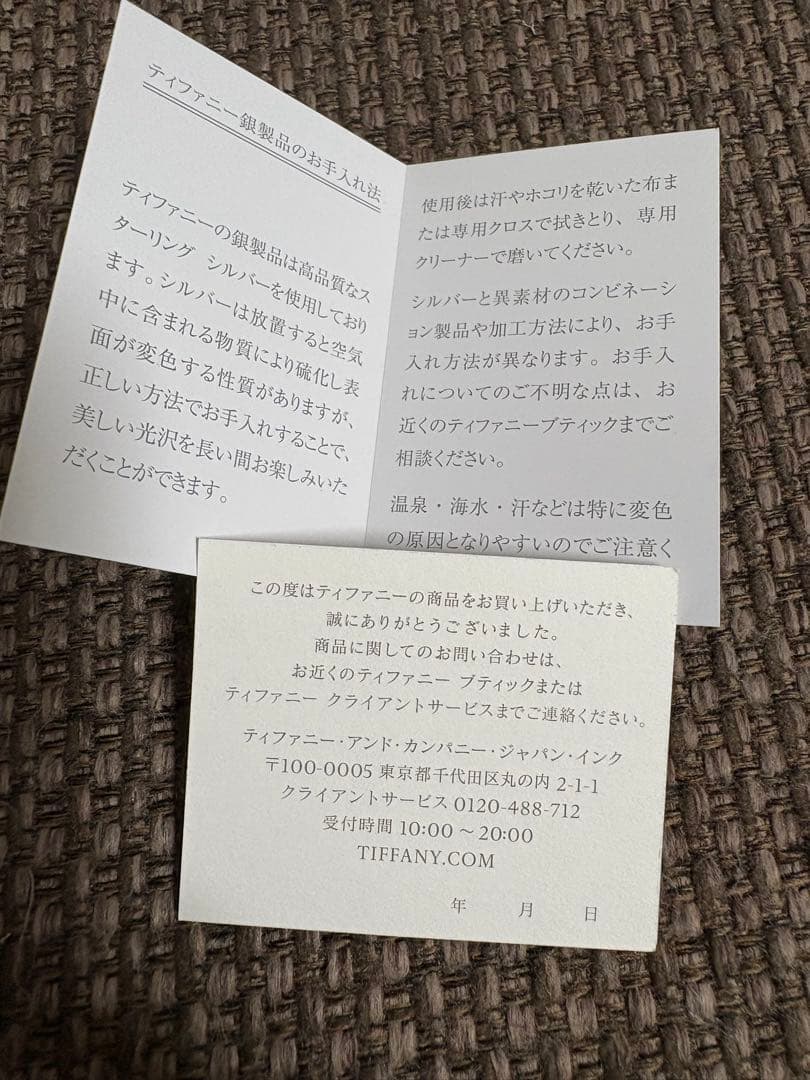 ティファニー銀製品のお手入れ法
ティファニーの銀製品は高品質なス
ターリング シルバーを使用しており
ます。シルバーは放置すると空気
中に含まれる物質により硫化し表
面が変色する性質がありますが、
正しい方法でお手入れすることで、
美しい光沢を長い間お楽しみいた
だくことができます。
使用後は汗やホコリを乾いた布ま
たは専用クロスで拭きとり、専用
クリーナーで磨いてください。
シルバーと異素材のコンビネーシ
ョン製品や加工方法により、お手
入れ方法が異なります。お手入
れについてのご不明な点は、お
近くのティファニーブティックまでご
相談ください。
温泉・海水・汗などは特に変色
の原因となりやすいのでご注意く
この度はティファニーの商品をお買い上げいただき、
誠にありがとうございました。
商品に関してのお問い合わせは、
お近くのティファニー ブティックまたは
ティファニー クライアントサービスまでご連絡ください。
ティファニー・アンド・カンパニー・ジャパン・インク
〒100-0005 東京都千代田区丸の内 2-1-1
クライアントサービス 0120-488-712
受付時間 10:00 ～ 20:00
TIFFANY.COM
年 月 日